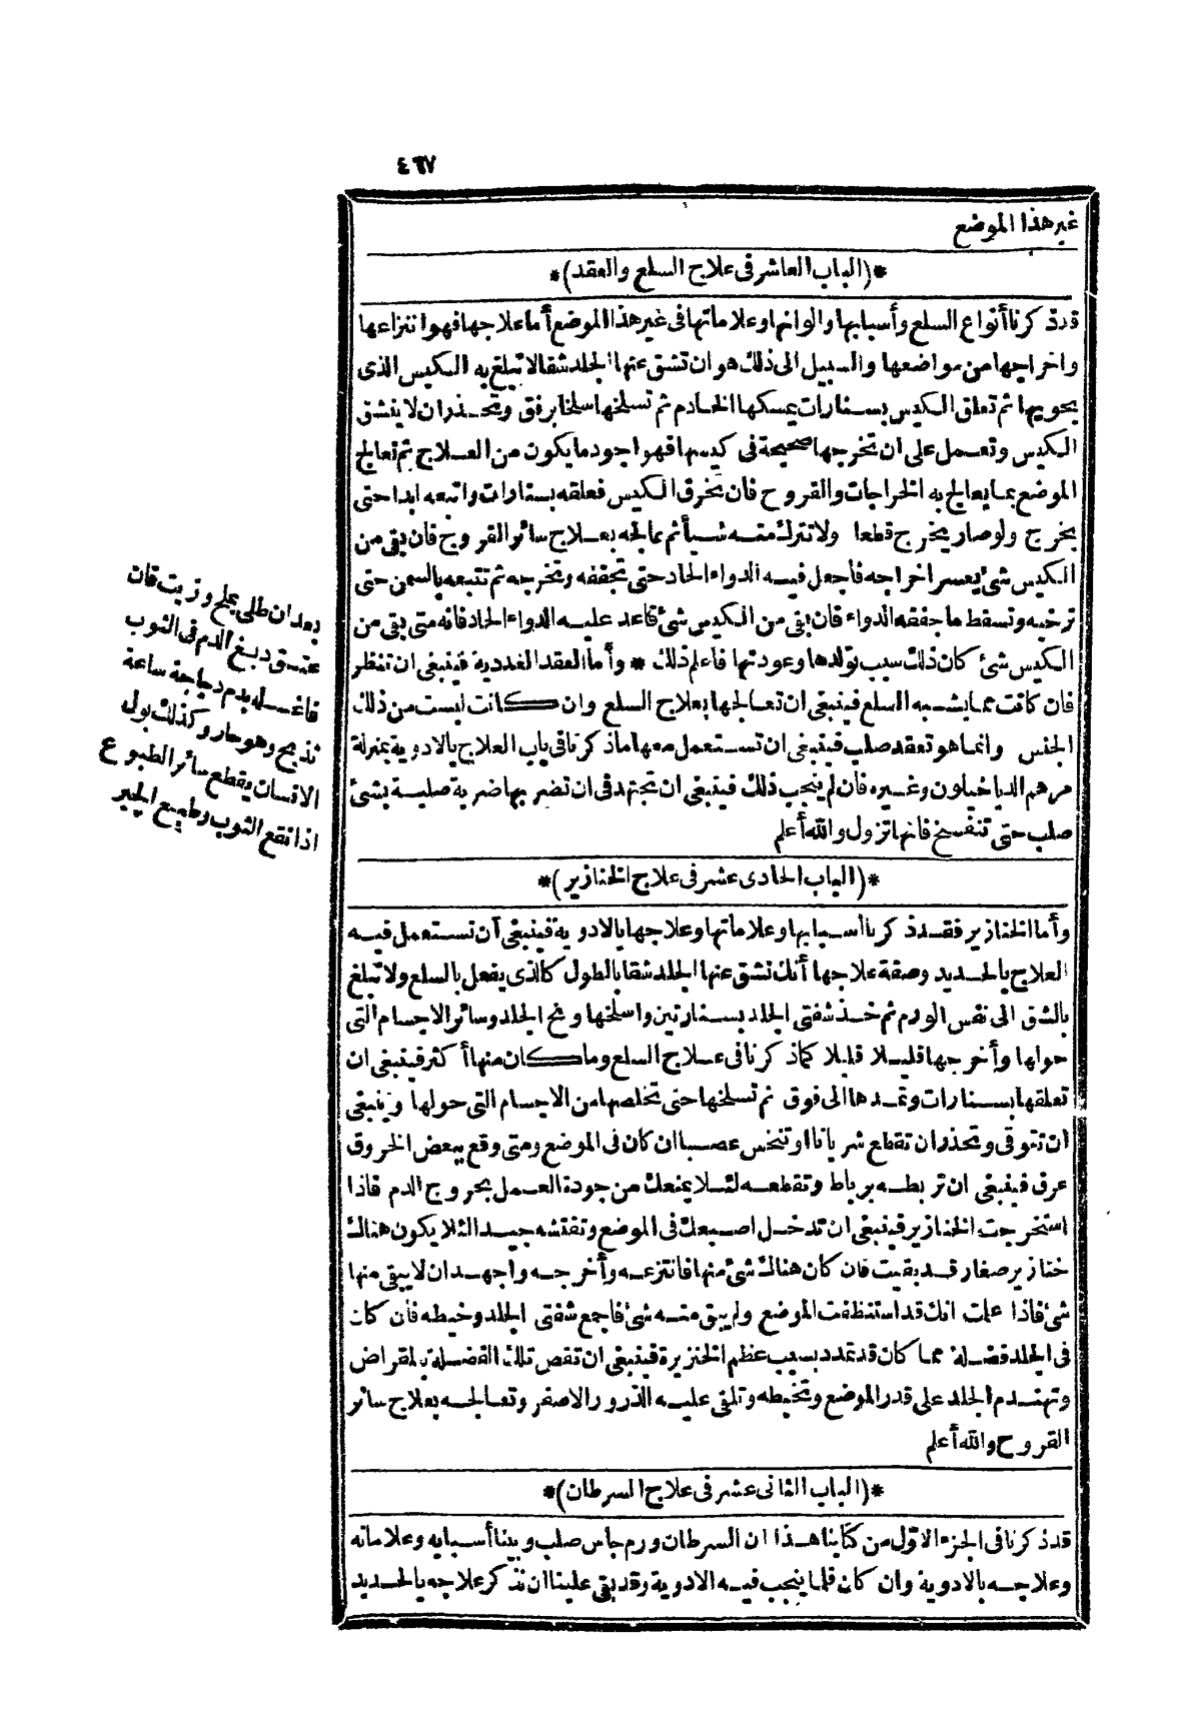 ٤٦٧
غير هذا الموضع
*(الباب العاشر فى علاج السلع والعقد)*
قد ذكرنا أنواع السلع وأسبابها والوانها وعلاماتها فى غير هذا الموضع أما علاجها فهو انتزاعها
واخراجها من مواضعها والسبيل الى ذلك هو ان تشق عنها الجلد شقا لا تبلغ به الكيس الذى
يحويها ثم تعلق الكيس بسنارات يمسكها الخادم ثم تسلخها سلخا برفق وتحذر ان لا ينشق
الكيس وتعمل على ان تخرجها صحيحة فى كيسها فهو اجود ما يكون من العلاج ثم تعالج
الموضع بما يعالج به الخراجات والقروح فان تخرق الكيس فعلقه بسنارات واتبعه ابدا حتى
يخرج ولو صار يخرج قطعا ولا تترك منه شيأ ثم عالجه بعلاج سائر القروح فان بقى من
الكيس شئ يعسر اخراجه فاجعل فيه الدواء الحاد حتى تجففه وتخرجه ثم تتبعه بالسمن حتى
ترخيه وتسقط ما جففه الدواء فان بقى من الكيس شئ فاعد عليه الدواء الحاد فانه متى بقى من
الكيس شئ كان ذلك سبب تولدها وعودتها فاعلم ذلك * وأما العقد الغددية فينبغى ان تنظر
فان كانت مما يشبه السلع فينبغى ان تعالجها بعلاج السلع وان كانت ليست من ذلك
الجنس وانما هو تعقد صلب فينبغى ان تستعمل معها ما ذكرنا فى باب العلاج بالادوية بمنزلة
مرهم الدياخيلون وغيره فان لم ينجب ذلك فينبغى ان تجتهد فى ان تضربها ضربة صلبة بشئ
صلب حتى تنفسخ فانها تزول والله أعلم
*(الباب الحادى عشر فى علاج الخنازير)*
وأما الخنازير فقد ذكرنا أسبابها وعلاماتها وعلاجها بالادوية فينبغى أن نستعمل فيه
العلاج بالحديد وصفة علاجها أنك تشق عنها الجلد شقا بالطول كالذى يفعل بالسلع ولا تبلغ
بالشق الى نفس الورم ثم خذ شفتى الجلد بسنارتين واسلخها ونح الجلد وسائر الاجسام التى
حولها وأخرجها قليلا قليلا كما ذكرنا فى علاج السلع وما كان منها أكثر فينبغى ان
تعلقها بسنارات وتمدها الى فوق ثم تسلخها حتى تخلصها من الاجسام التى حولها وينبغى
ان تتوقى وتحذر ان تقطع شريانا او تنخس عصبا ان كان فى الموضع ومتى وقع ببعض الخروق
عرق فينبغى ان تربطه برباط وتقطعه لئلا يمنعك من جودة العمل بخروج الدم فاذا
استخرجت الخنازير فينبغى ان تدخل اصبعك فى الموضع وتفتشه جيدا لئلا يكون هناك
خنازير صغار قد بقيت فان كان هناك شئ منها فانتزعه وأخرجه واجهد ان لا يبقى منها
شئ فاذا علمت انك قد استنظفت الموضع ولم يبق منه شئ فاجمع شفتى الجلد وخيطه فان كان
فى الجلد فضلة مما كان قد تمدد بسبب عظم الخنزيرة فينبغى ان تقص تلك الفضلة بالمقراض
وتهندم الجلد على قدر الموضع وتخيطه وتلقى عليه الذرور الاصفر وتعالجه بعلاج سائر
القروح والله أعلم
*(الباب الثانى عشر فى علاج السرطان)*
قد ذكرنا فى الجزء الاول من كتابنا هذا ان السرطان ورم جاس صلب وبينا أسبابه وعلاماته
وعلاجه بالادوية وان كان قلما ينجب فيه الادوية وقد بقى علينا ان نذكر علاجه بالحديد
بعد ان طلى بملح وزيت فان
عتق دبغ الدم فى الثوب
فاغسله بدم دجاجة ساعة
تذبح وهو حار وكذلك بول
الانسان يقطع سائر الطبوع
اذا نقع الثوب وطبيخ الجير